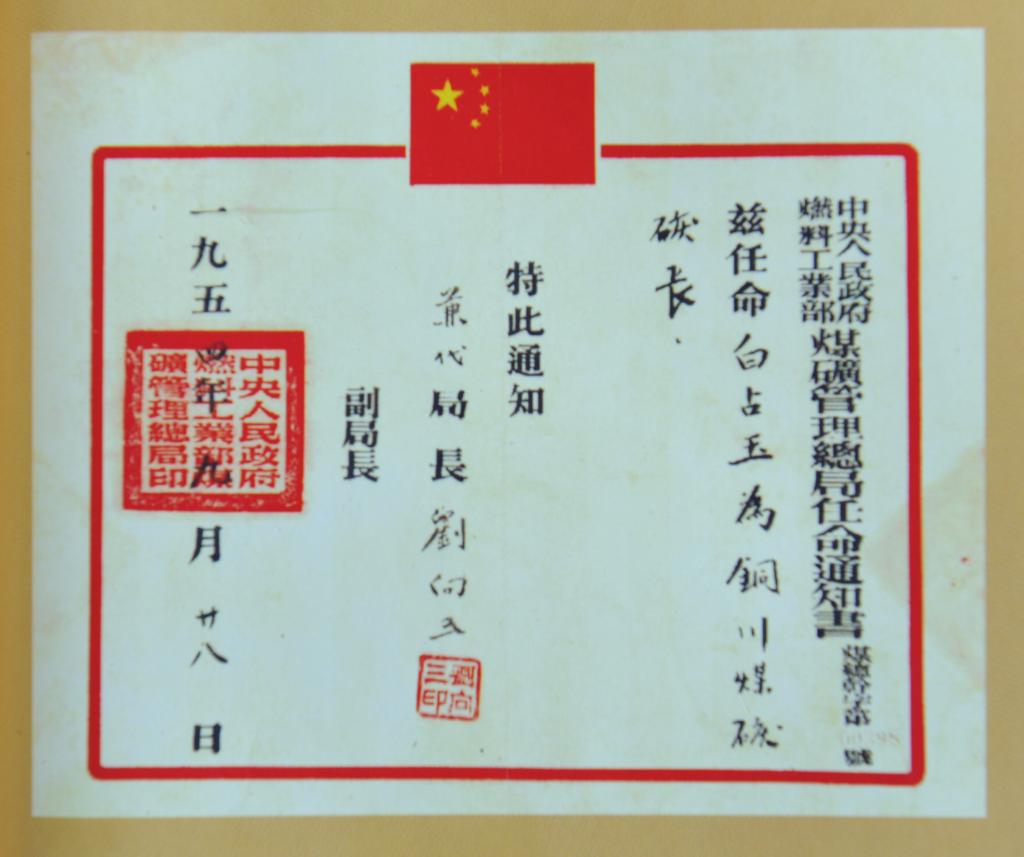 中央人民政府
燃料工業部
煤礦管理總局任命通知書
煤總幹字第
號
兹任命白占玉為銅川煤礦
礦長.
特此通知
兼代局長劉向三
劉向
三印
副局長
一九五四年九月廿八日
中央人民政府
燃料工業部煤
礦管理總局印